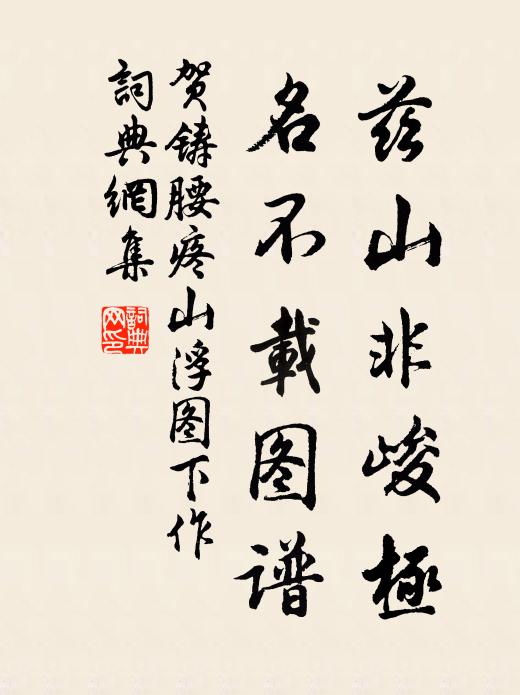 兹山非峻極
名不載图谱
贺鋳腰疼山浮图下作
詞典網集
詞典网印